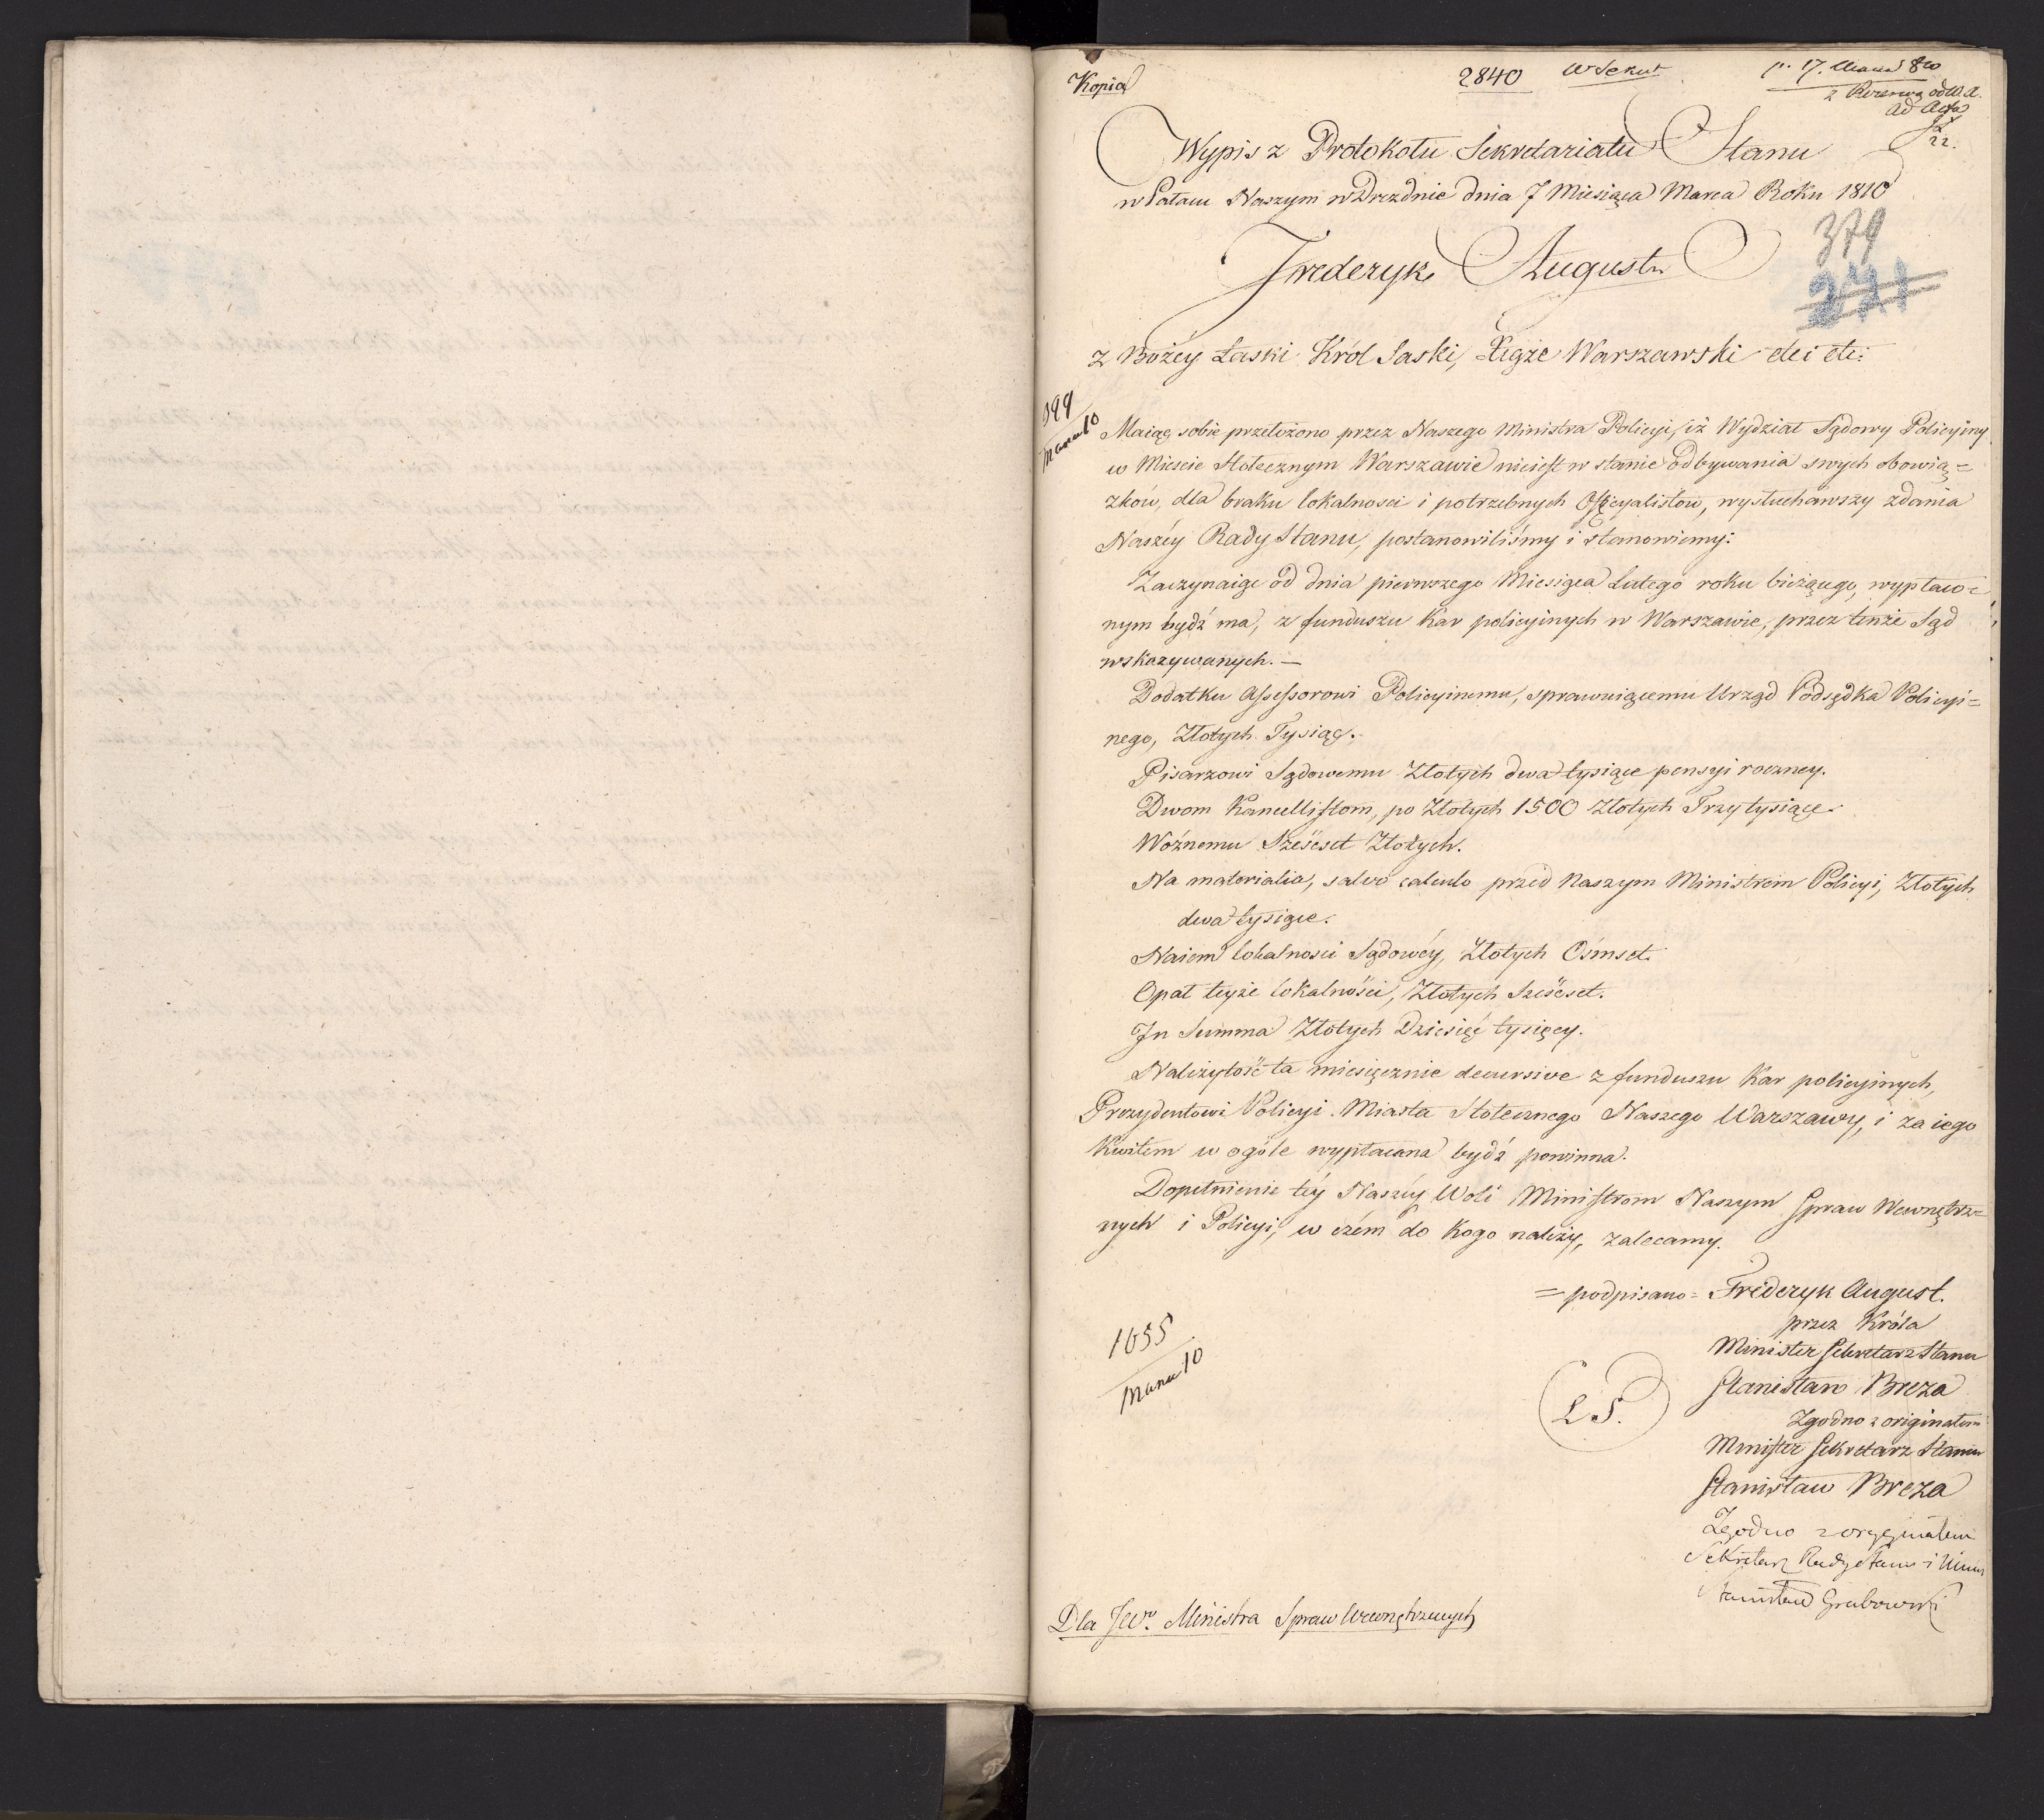 Kopia
2840
p. 17. Marca 810
ad Acta
22.
Wypis z Protokołu Sekretariatu Stanu
w Pałacu Naszym w Dreźdnie dnia 7 Miesiąca Marca Roku 1810
379
271
Fryderyk August
z Bożey Łaski Król Saski, Xiąże Warszawski etc: etc:
Marca 10
Maiąc sobie przełożono przez Naszego Ministra Policyi, iż Wydział Sądowy Policyiny
w Mieście Stołecznym Warszawie nieiest w stanie odbywania swych obowią=
zków, dla braku lokalności i potrzebnych Officyalistów, wysłuchawszy zdania
Naszéy Rady Stanu, postanowiliśmy i stanowiemy:
Zaczynaiąc od dnia pierwszego Miesiąca Lutego roku bieżącego, wypłaco=
nym bydź ma, z funduszu Kar policyinych w Warszawie, przez tenże Sąd
wskazywanych. —
Dodatku Assessorowi Policyinemu, sprawuiącemu Urząd Podsędka Policyi=
nego, Złotych Tysiąc.
Pisarzowi Sądowemu Złotych dwa tysiące pensyi roczney.
Dwom Kancellistom, po Złotych 1500 Złotych Trzy tysiące.
Woźnemu Sześćset Złotych.
Na materialia, salvo calculo przed Naszym Ministrem Policyi, Złotych
dwa tysiące.
Naiem lokalności Sądowéy, Złotych Ośmset.
Opał teyże lokalności, Złotych Sześćset.
In Summa Złotych Dziesięć tysięcy.
Należytość ta miesięcznie decursive z funduszu Kar policyinych,
Prezydentowi Policyi Miasta Stołecznego Naszego Warszawy, i za iego
Kwitem w ogóle wypłacana bydź powinna.
Dopełnienie téy Naszéy Woli Ministrom Naszym Spraw Wewnętrz=
nych i Policyi, w czém do Kogo należy, zalecamy.
= podpisano = Fréderyk August.
przez Króla
Minister Sekretarz Stanu
1055
Marca 10
Stanisław Breza
L S.
Zgodno z originałem
Minister Sekretarz Stanu
Stanisław Breza
Zgodno z oryginałem
Sekretarz Rady Stanu i Minis
Stanisław Grabowski
Dla JW.º Ministra Spraw Wewnętrznych